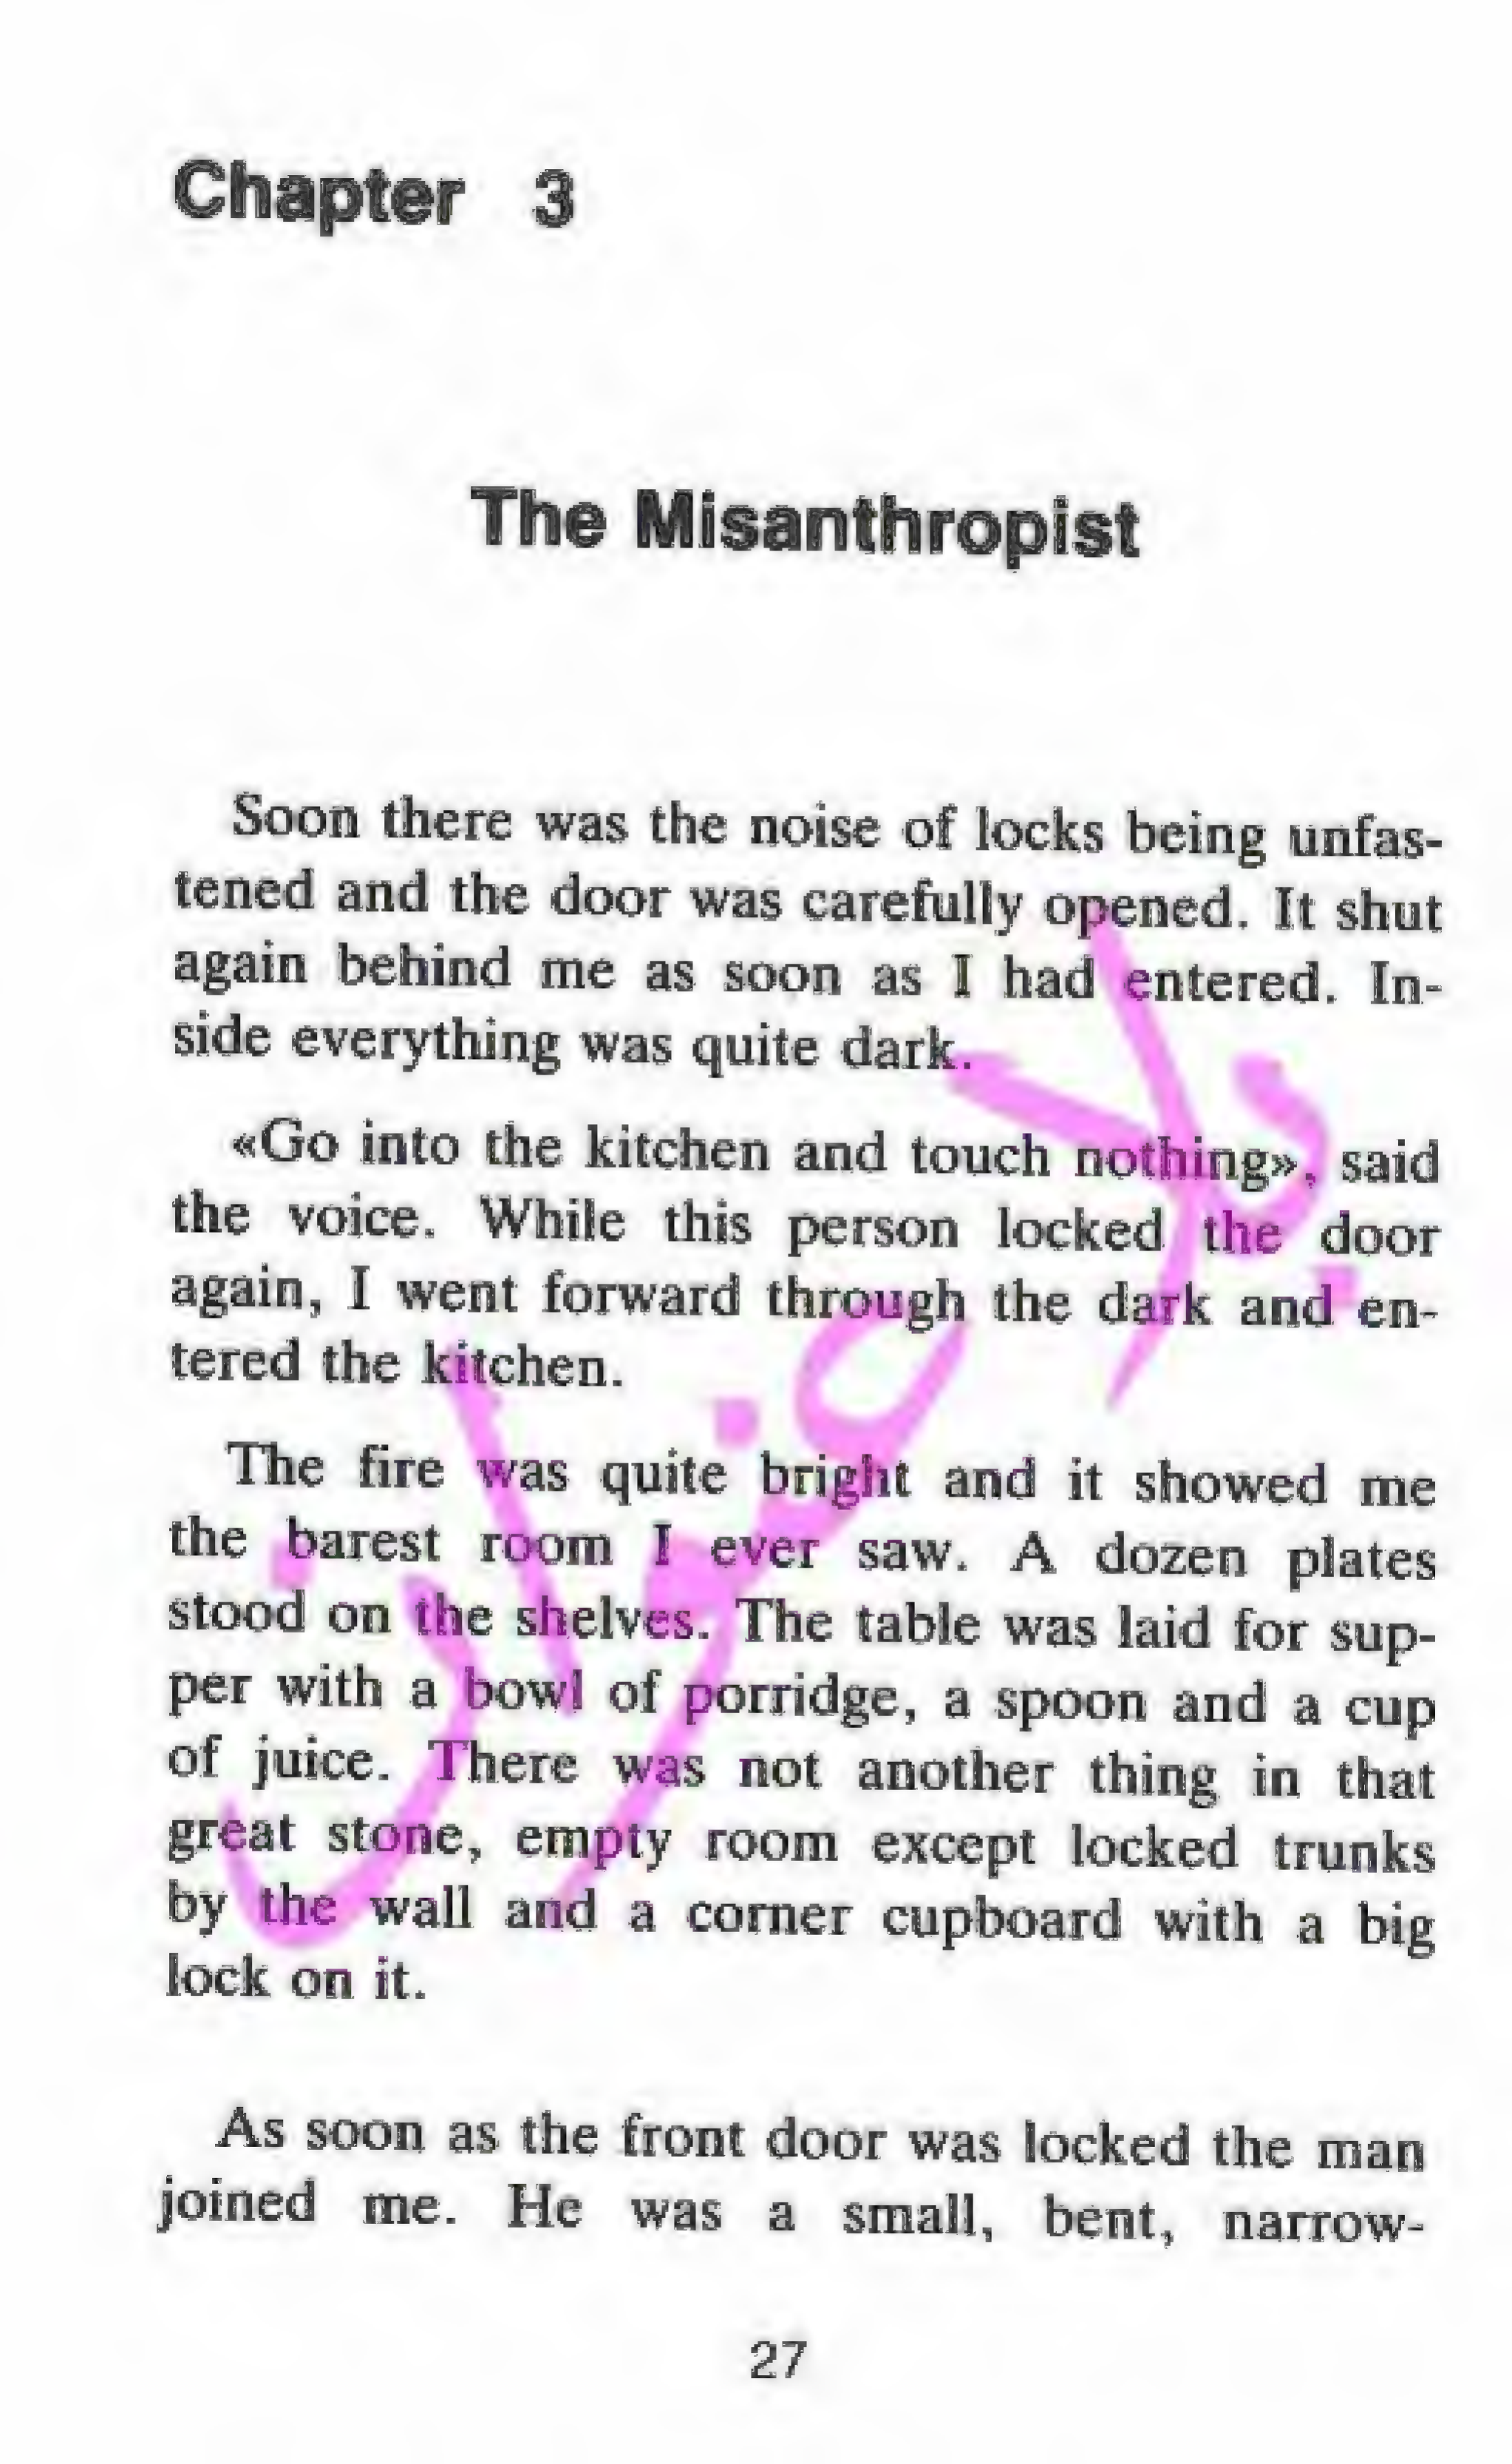 Chapter 3
The Misanthropist
Soon there was the noise of locks being unfas-
tened and the door was carefully opened. It shut
again behind me as soon as I had entered. In-
side everything was quite dark.
«Go into the kitchen and touch nothing», said
the voice. While this person locked the door
again, I went forward through the dark and en-
tered the kitchen.
The fire was quite bright and it showed me
the barest room I ever saw. A dozen plates
stood on the shelves. The table was laid for sup-
per with a bowl of porridge, a spoon and a cup
of juice. There was not another thing in that
great stone, empty room except locked trunks
by the wall and a corner cupboard with a big
lock on it.
As soon as the front door was locked the man
joined me. He was a small, bent, narrow-
27